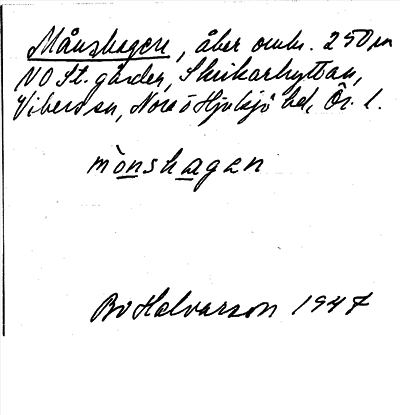 Månshagen, åker omkr. 250 m
NO St. gården, Skrikarhyttan,
Vibers sn, Nora o Hjulsjö hd, Ör. l.
mònshagen
Bo Halvarson 1947